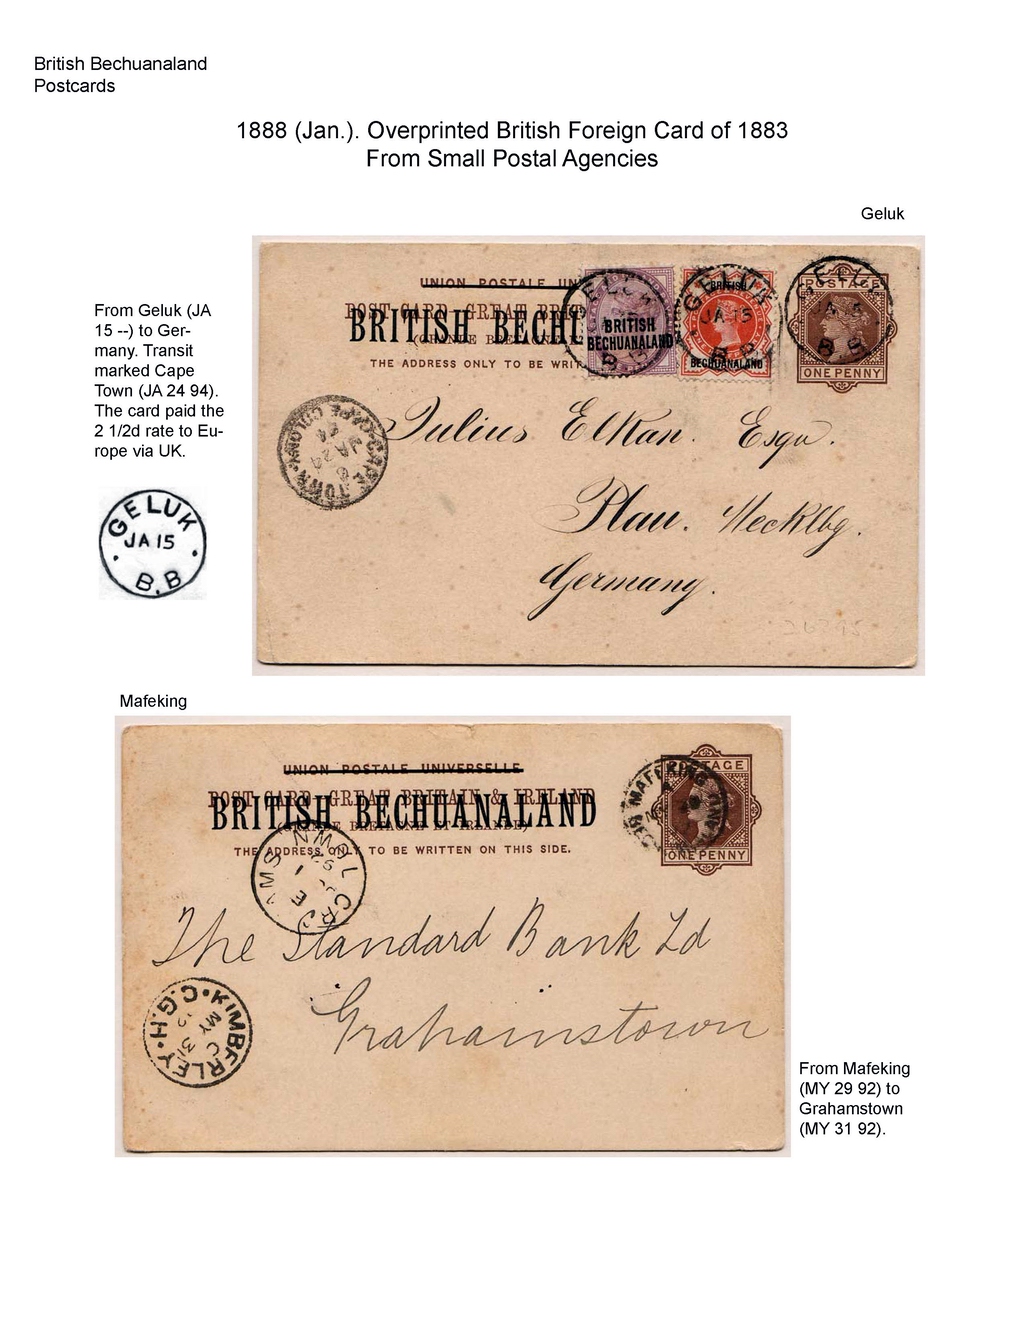 British Bechuanaland
Postcards
1888 (Jan.). Overprinted British Foreign Card of 1883
From Small Postal Agencies
Geluk
From Geluk (JA
15 --) to Ger-
many. Transit
marked Cape
Town (JA 24 94).
The card paid the
2 1/2d rate to Eu-
rope via UK.
GELUK
JA 15
B.B
UNION POSTALE UN
POST CARD - GREAT BRIT
BRITISH BECH
(GRANDE BRETAGNE E
THE ADDRESS ONLY TO BE WRIT
BRITISH
BECHUANALAND
BRITISH
BECHUANALAND
GELUK
JA 15
B B
POSTAGE
ONE PENNY
CAPE TOWN CAPE COLONY
JA 24
94
Julius Elkan. Esqu.
Plau. Mecklbg.
Germany.
Mafeking
UNION POSTALE UNIVERSELLE
POST CARD - GREAT BRITAIN & IRELAND
BRITISH BECHUANALAND
(GRANDE BRETAGNE ET IRLANDE)
THE ADDRESS ONLY TO BE WRITTEN ON THIS SIDE.
MAFEKING
POSTAGE
ONE PENNY
The Standard Bank Ld
Grahamstown
KIMBERLEY C.G.H.
C
MY 31
From Mafeking
(MY 29 92) to
Grahamstown
(MY 31 92).